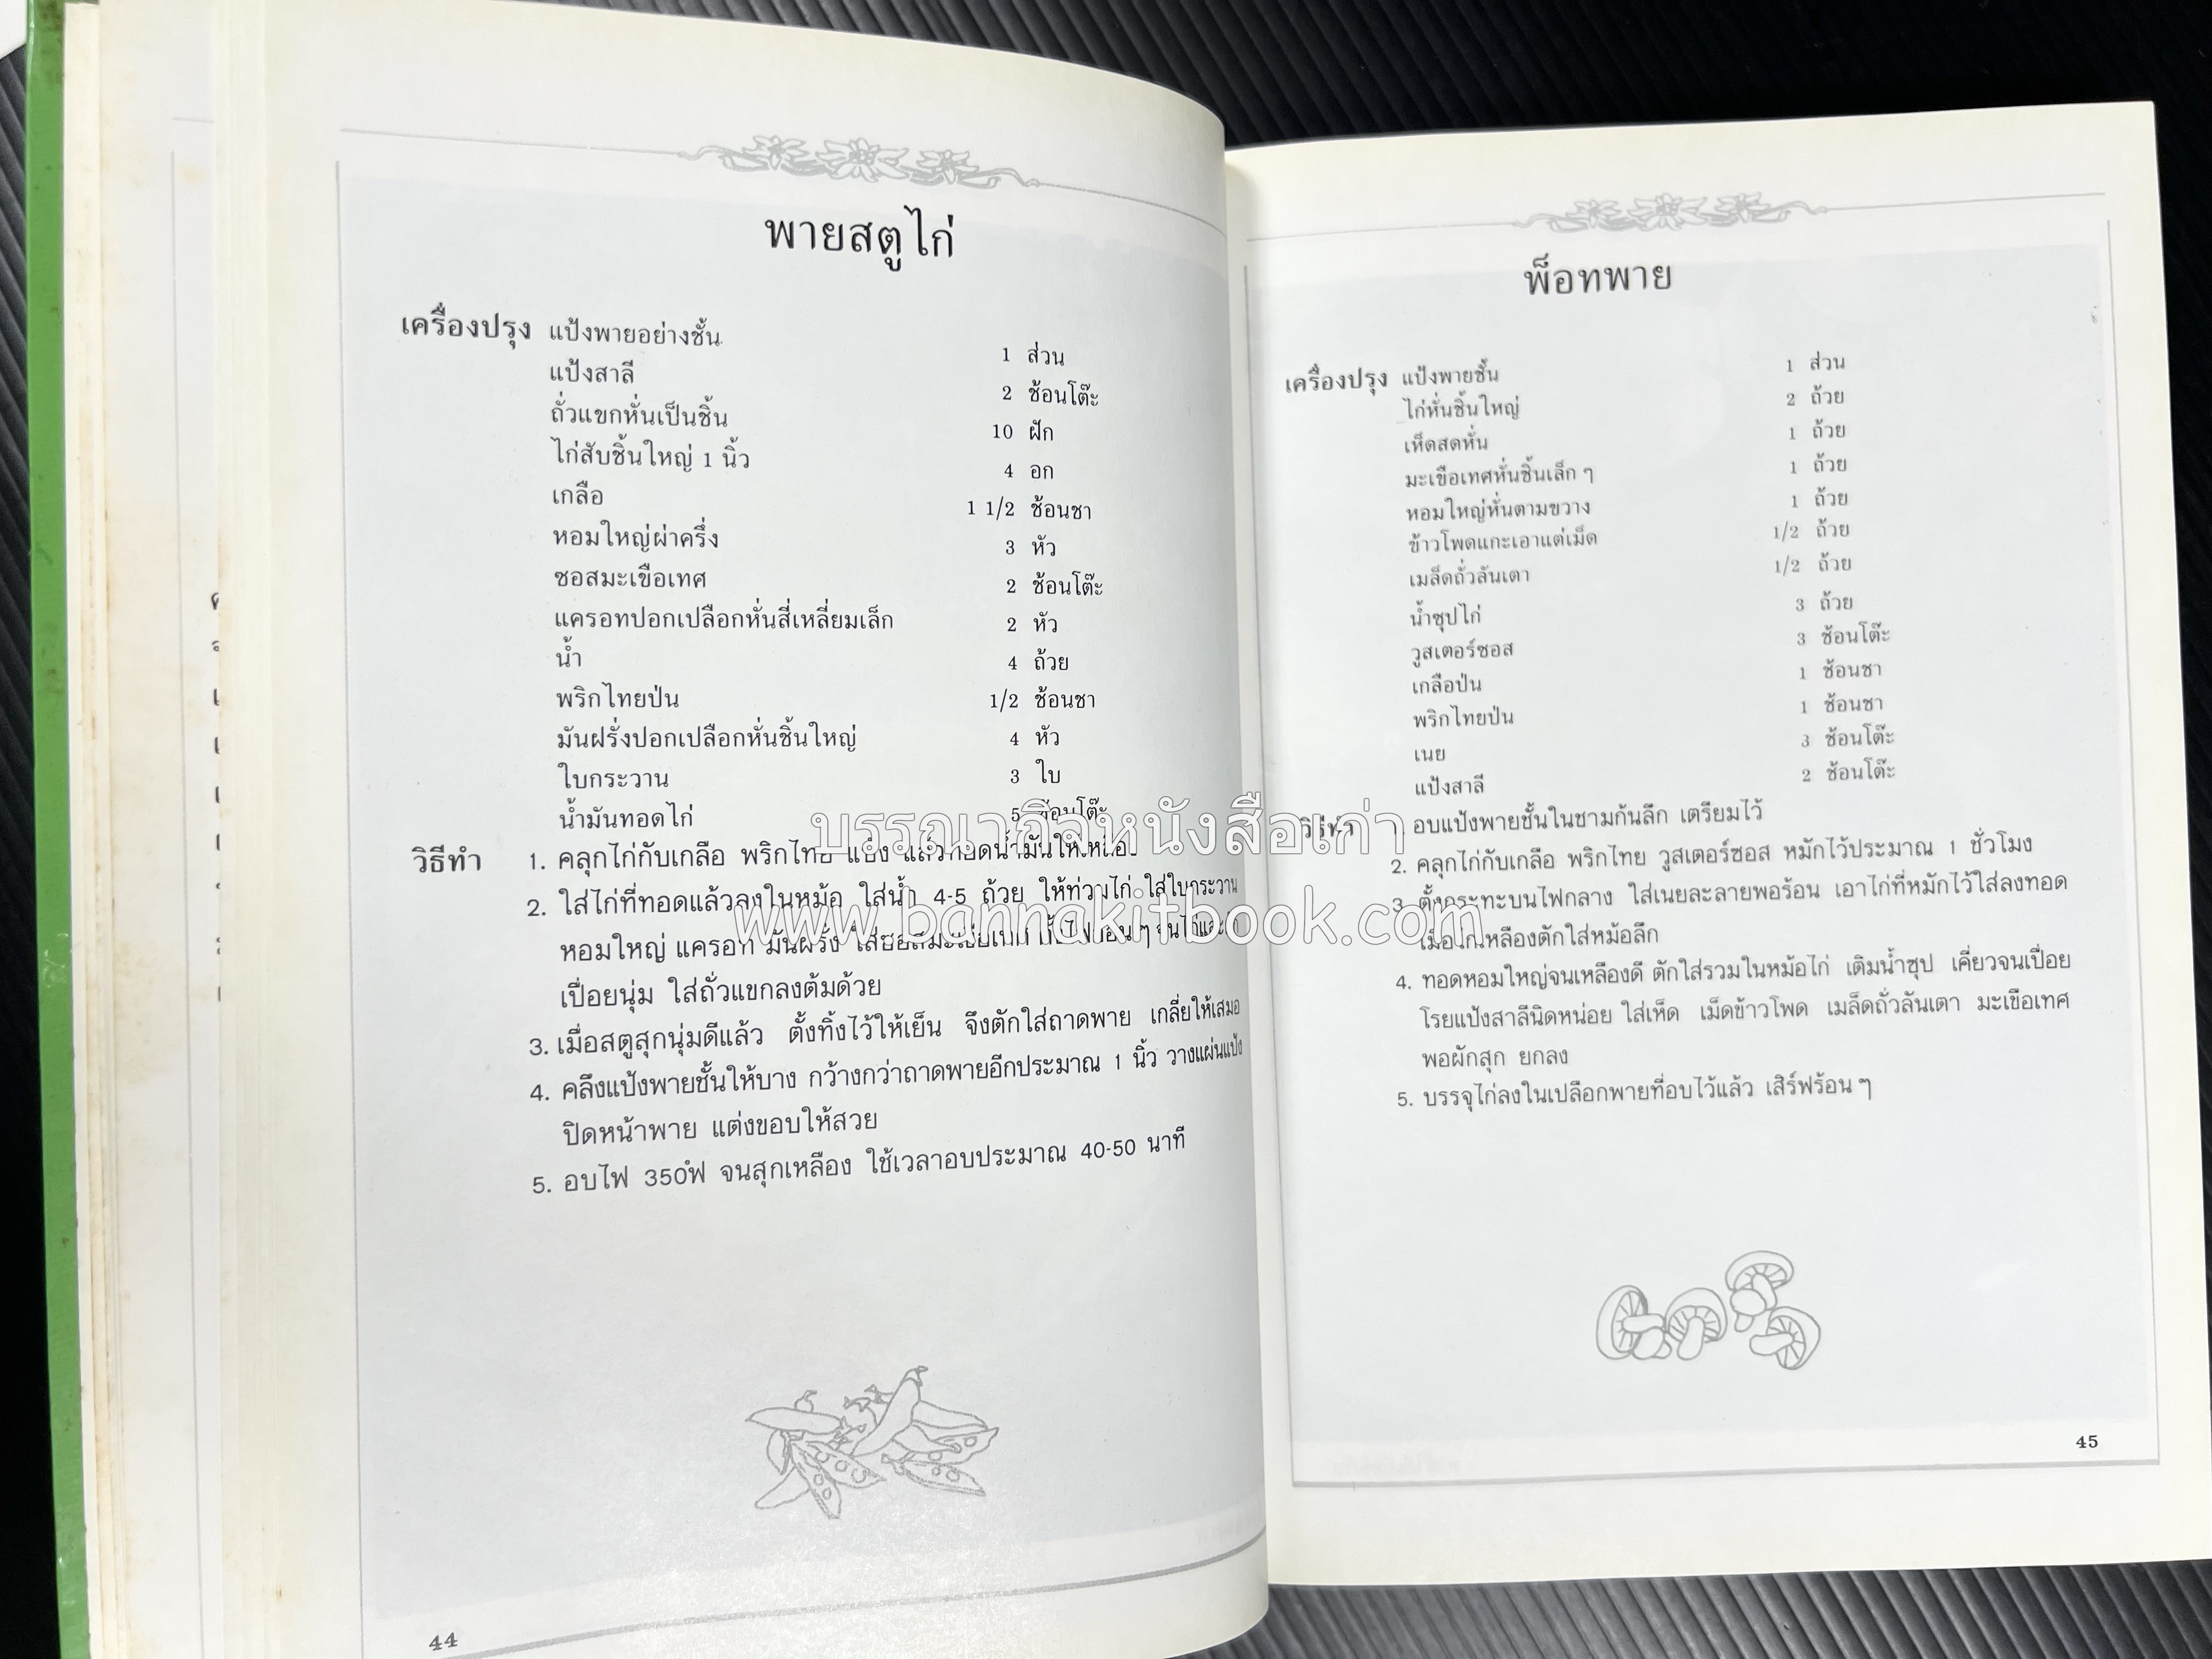 พายสตูไก่
เครื่องปรุง แป้งพายอย่างชั้น 1 ส่วน
แป้งสาลี 2 ช้อนโต๊ะ
ถั่วแขกหั่นเป็นชิ้น 10 ฝัก
ไก่สับชิ้นใหญ่ 1 นิ้ว 4 อก
เกลือ 1 1/2 ช้อนชา
หอมใหญ่ผ่าครึ่ง 3 หัว
ซอสมะเขือเทศ 2 ช้อนโต๊ะ
แครอทปอกเปลือกหั่นสี่เหลี่ยมเล็ก 2 หัว
น้ำ 4 ถ้วย
พริกไทยป่น 1/2 ช้อนชา
มันฝรั่งปอกเปลือกหั่นชิ้นใหญ่ 4 หัว
ใบกระวาน 3 ใบ
น้ำมันทอดไก่ 5 ช้อนโต๊ะ
วิธีทำ 1. คลุกไก่กับเกลือ พริกไทย แป้ง แล้วทอดน้ำมันให้เหลือง
2. ใส่ไก่ที่ทอดแล้วลงในหม้อ ใส่น้ำ 4-5 ถ้วย ให้ท่วมไก่ ใส่ใบกระวาน
หอมใหญ่ แครอท มันฝรั่ง ใส่ซอสมะเขือเทศ ตั้งไฟอ่อน ๆ จนไก่และผัก
เปื่อยนุ่ม ใส่ถั่วแขกลงต้มด้วย
3. เมื่อสตูสุกนุ่มดีแล้ว ตั้งทิ้งไว้ให้เย็น จึงตักใส่ถาดพาย เกลี่ยให้เสมอ
4. คลึงแป้งพายชั้นให้บาง กว้างกว่าถาดพายอีกประมาณ 1 นิ้ว วางแผ่นแป้ง
ปิดหน้าพาย แต่งขอบให้สวย
5. อบไฟ 350°ฟ จนสุกเหลือง ใช้เวลาอบประมาณ 40-50 นาที
44
พ็อทพาย
เครื่องปรุง แป้งพายชั้น 1 ส่วน
ไก่หั่นชิ้นใหญ่ 2 ถ้วย
เห็ดสดหั่น 1 ถ้วย
มะเขือเทศหั่นชิ้นเล็ก ๆ 1 ถ้วย
หอมใหญ่หั่นตามขวาง 1 ถ้วย
ข้าวโพดแกะเอาแต่เม็ด 1/2 ถ้วย
เมล็ดถั่วลันเตา 1/2 ถ้วย
น้ำซุปไก่ 3 ถ้วย
วูสเตอร์ซอส 3 ช้อนโต๊ะ
เกลือป่น 1 ช้อนชา
พริกไทยป่น 1 ช้อนชา
เนย 3 ช้อนโต๊ะ
แป้งสาลี 2 ช้อนโต๊ะ
วิธีทำ 1. อบแป้งพายชั้นในชามก้นลึก เตรียมไว้
2. คลุกไก่กับเกลือ พริกไทย วูสเตอร์ซอส หมักไว้ประมาณ 1 ชั่วโมง
3. ตั้งกระทะบนไฟกลาง ใส่เนยละลายพอร้อน เอาไก่ที่หมักไว้ใส่ลงทอด
เมื่อไก่เหลืองตักใส่หม้อลึก
4. ทอดหอมใหญ่จนเหลืองดี ตักใส่รวมในหม้อไก่ เติมน้ำซุป เคี่ยวจนเปื่อย
โรยแป้งสาลีนิดหน่อย ใส่เห็ด เม็ดข้าวโพด เมล็ดถั่วลันเตา มะเขือเทศ
พอผักสุก ยกลง
5. บรรจุไก่ลงในเปลือกพายที่อบไว้แล้ว เสิร์ฟร้อน ๆ
45
บรรณกิจหนังสือเก่า
www.bannakitbook.com